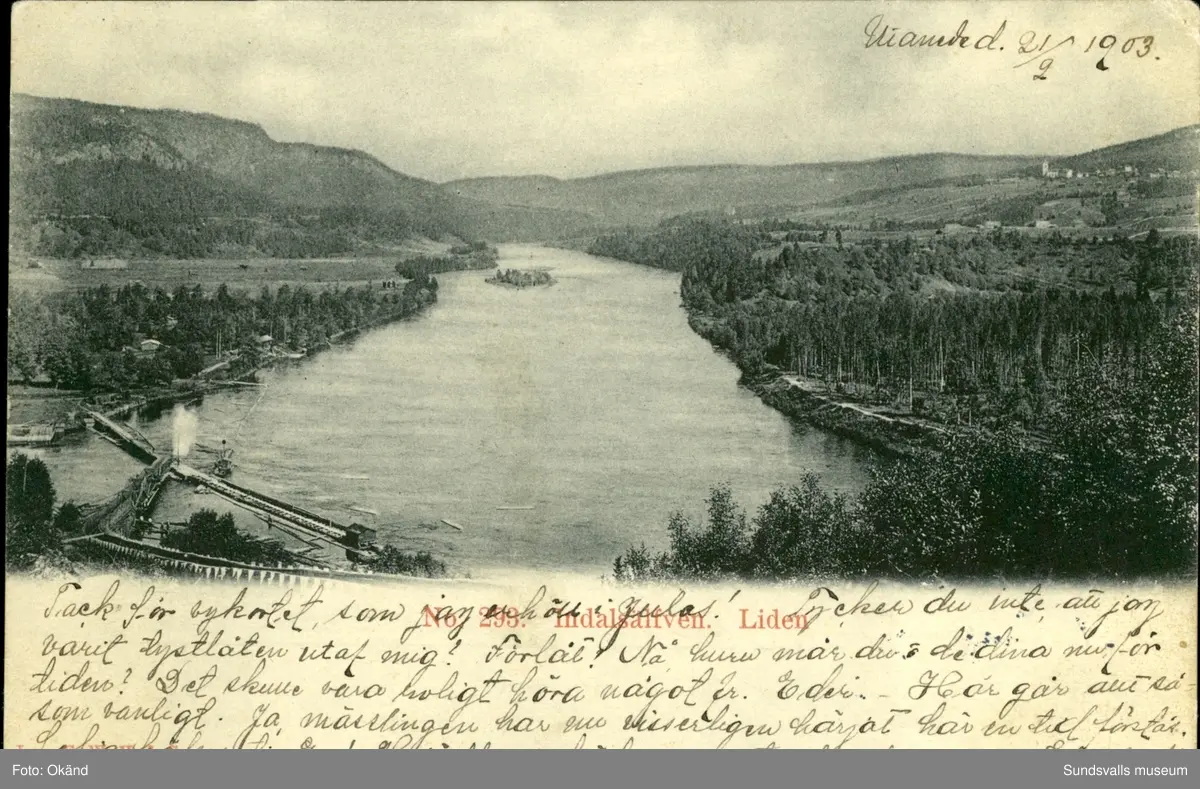 21/2 1903.
Tack för vykortet, som jag erhöll i Julas! Tycker du inte, att jag
No. 293. Indalsälfven. Liden
varit tystlåten utaf mig? Förlåt! Nå, huru mår du o de dina nu för
tiden? Det skulle vara roligt höra något fr. Eder. - Här går allt så
som vanligt. Ja, mässlingen har nu visserligen härjat här en tid förstås.
Foto: Okänd
Sundsvalls museum